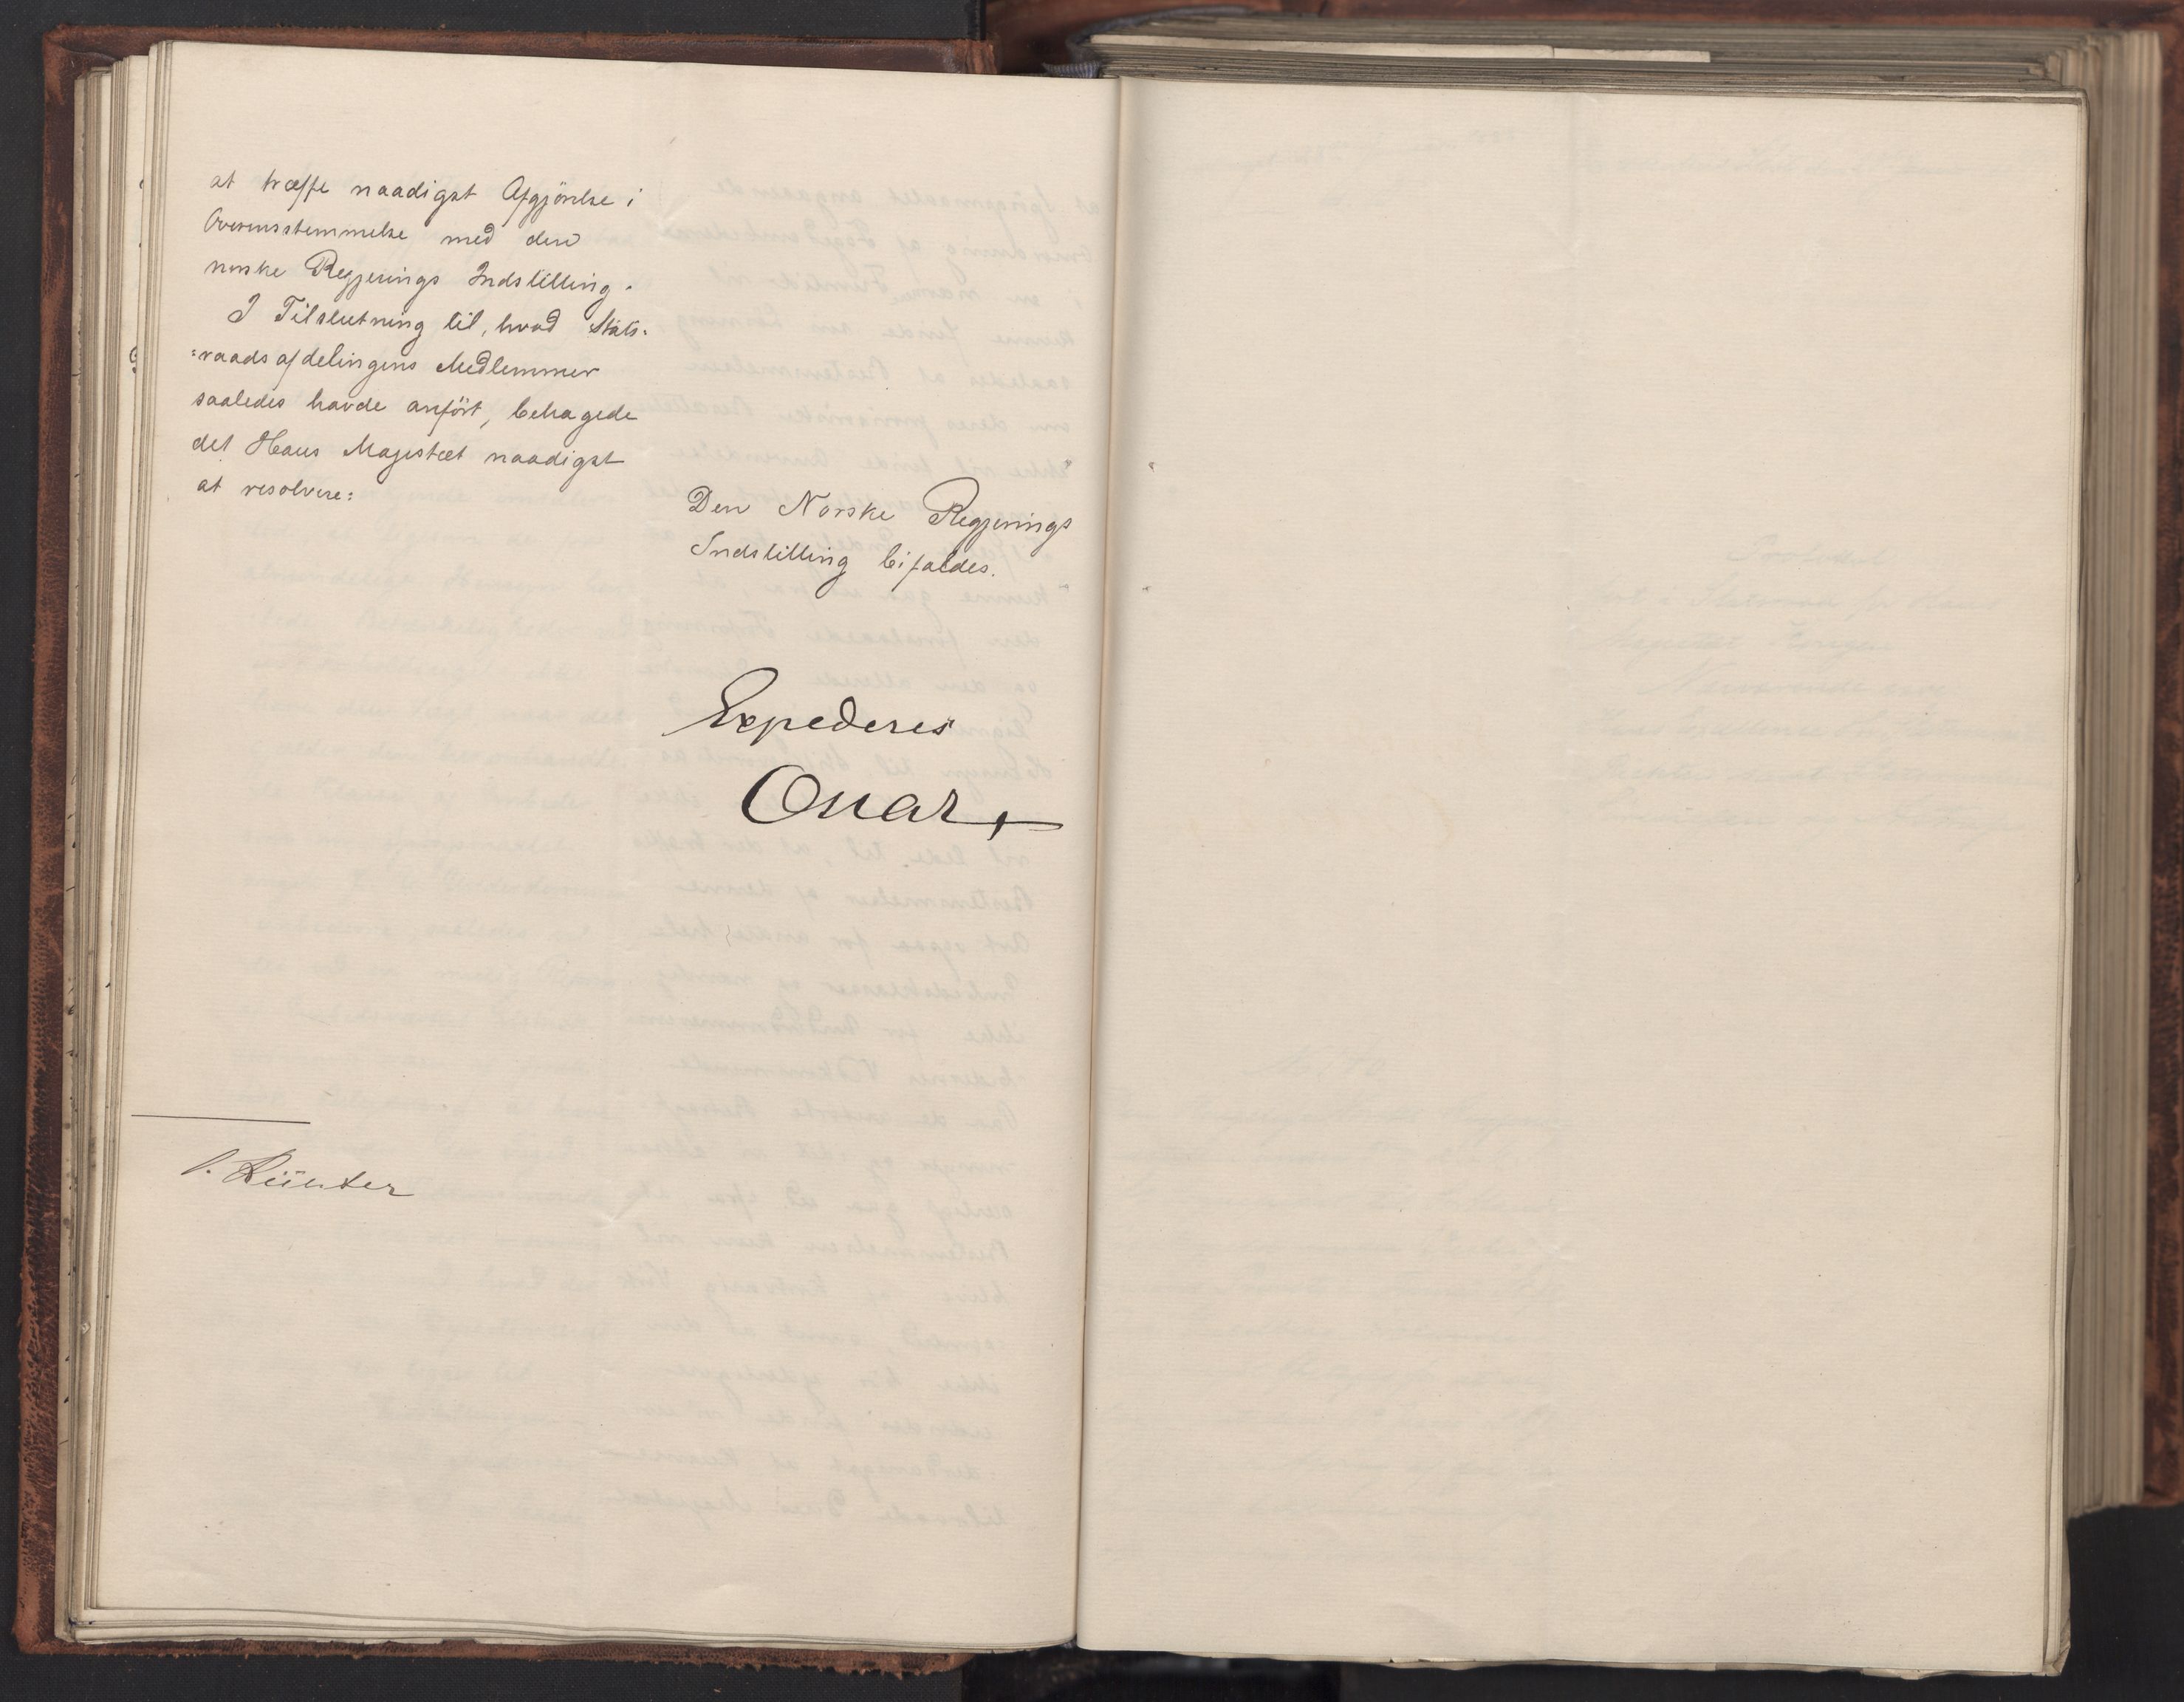 at træffe naadigst Afgjörelse i
Overensstemmelse med den
norske Regjerings Indstilling.
I Tilslutning til, hvad Stats-
=raadsafdelingens Medlemmer
saaledes havde anfört, behagede
det Hans Majestæt naadigst
at resolvere:
Den Norske Regjerings
Indstilling bifaldes.
Expederes
Oscar